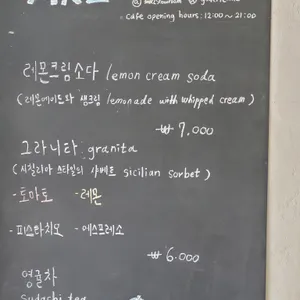 cafe opening hours : 12:00 ~ 21:00
레몬크림소다 / lemon cream soda
( 레몬에이드와 생크림 lemonade with whipped cream )
₩ 7.000
그라니타 granita
( 시칠리아 스타일의 샤베트 sicilian sorbet )
- 토마토 - 레몬
- 피스타치오 - 에스프레소
₩ 6.000
영귤차
Sudachi tea